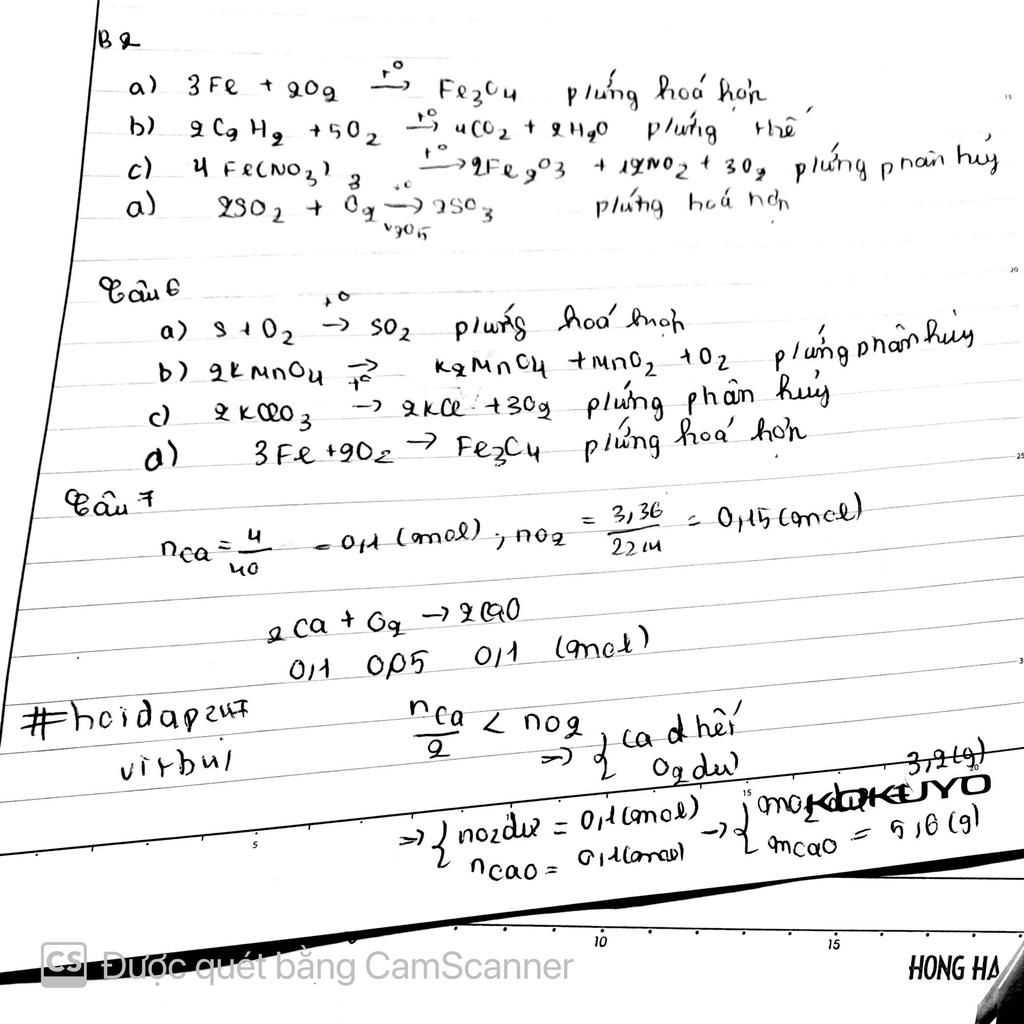 B2
a) 3Fe + 2O2 t° → Fe3O4 p/ứng hoá hợp
b) 2C2H2 + 5O2 t° → 4CO2 + 2H2O p/ứng thế
c) 4Fe(NO3)3 t° → 2Fe2O3 + 12NO2 + 3O2 p/ứng phân hủy
d) 2SO2 + O2 t° → V2O5 2SO3 p/ứng hoá hợp
Câu 6
a) S + O2 t° → SO2 p/ứng hoá hợp
b) 2KMnO4 → t° K2MnO4 + MnO2 + O2 p/ứng phân hủy
c) 2KClO3 → 2KCl + 3O2 p/ứng phân hủy
d) 3Fe + 2O2 → Fe3O4 p/ứng hoá hợp
Câu 7
nCa = 4/40 = 0,1 (mol) ; nO2 = 3,36/22,4 = 0,15 (mol)
2Ca + O2 → 2CaO
0,1 0,05 0,1 (mol)
#hoidap247
nCa/2 < nO2 => { Ca hết
O2 dư
virbul
=> { nO2 dư = 0,1 (mol) → { mO2 dư = 3,2 (g)
nCaO = 0,1 (mol) mCaO = 5,6 (g)
KOKUYO
15 20 25 3
5 15 20
10 15
HONG HA
CS Được quét bằng CamScanner